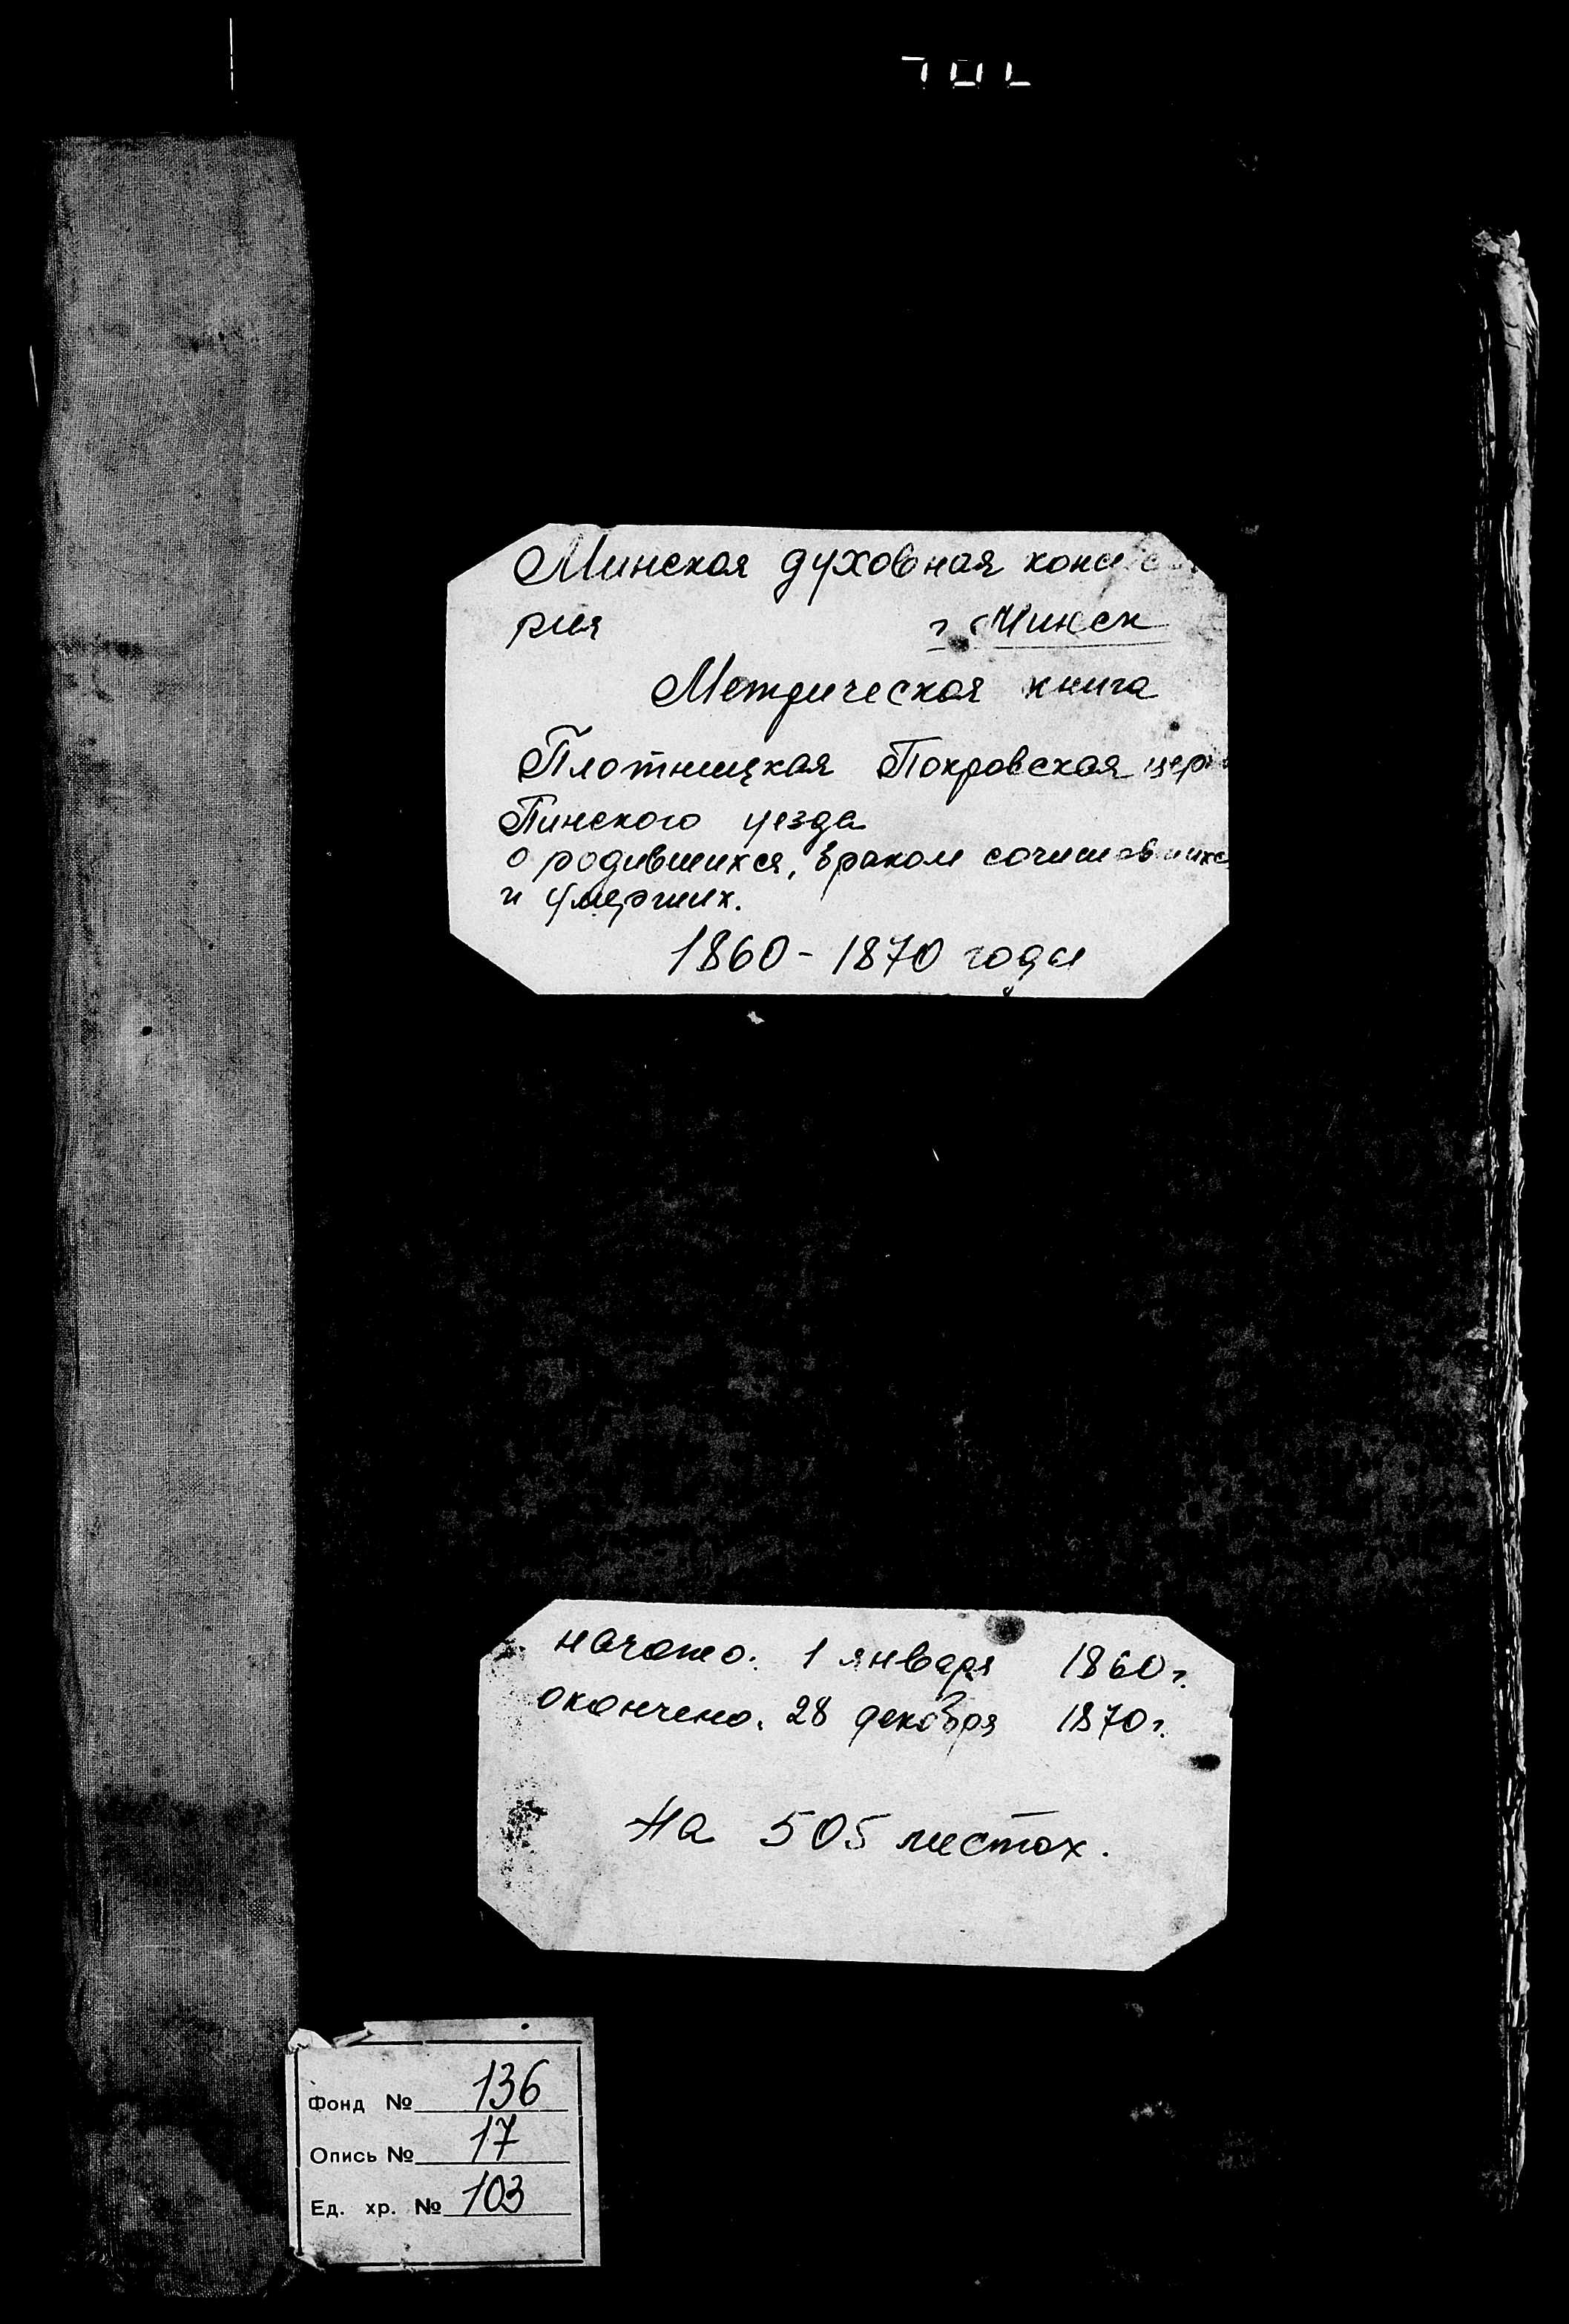 Минская духовная конси
рия г. Минск
Метрическая книга
Плотницкая Покровская церк
Пинского уезда
о родившихся, браком сочетавшихс
и умерших.
1860 - 1870 годы
начато. 1 января 1860 г.
окончено. 28 декабря 1870 г.
На 505 листах.
Фонд № 136
Опись № 17
Ед. хр. № 103